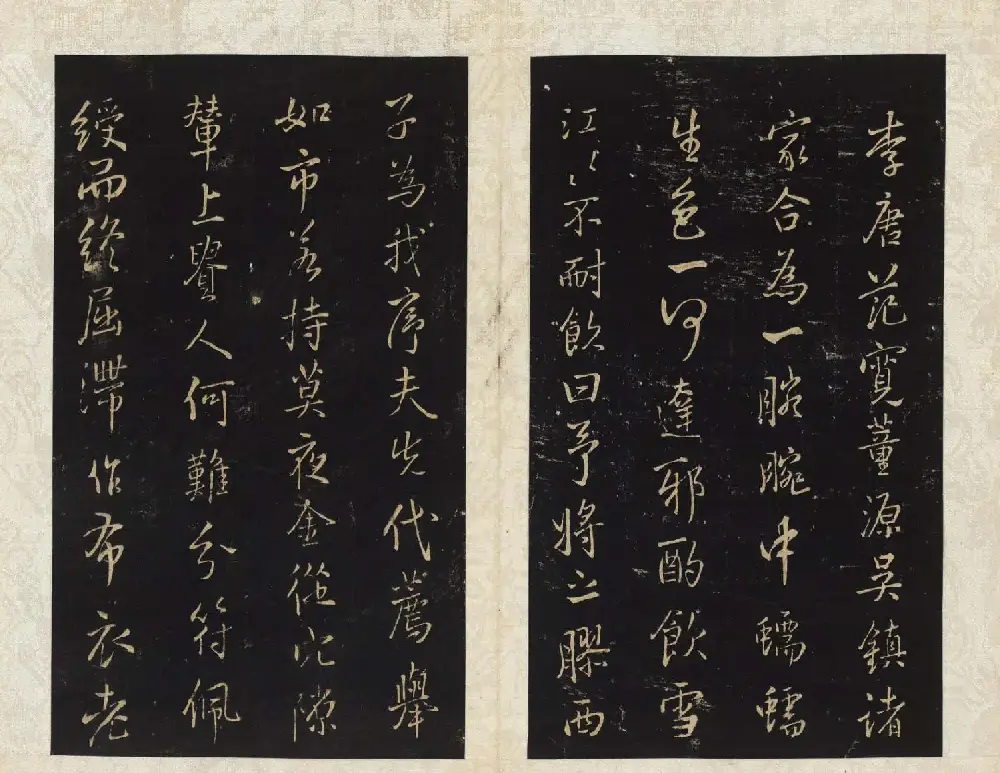 李唐范寬董源吳鎮諸
家合為一腕腕中蠕蠕
生色一何達邪酌飲雪
江〻〻不耐飲曰予將之膠西
子為我序夫先代薦舉
如市若持莫夜金從此隙
輦上譽人何難分符佩
綬而終屈滯作布衣老